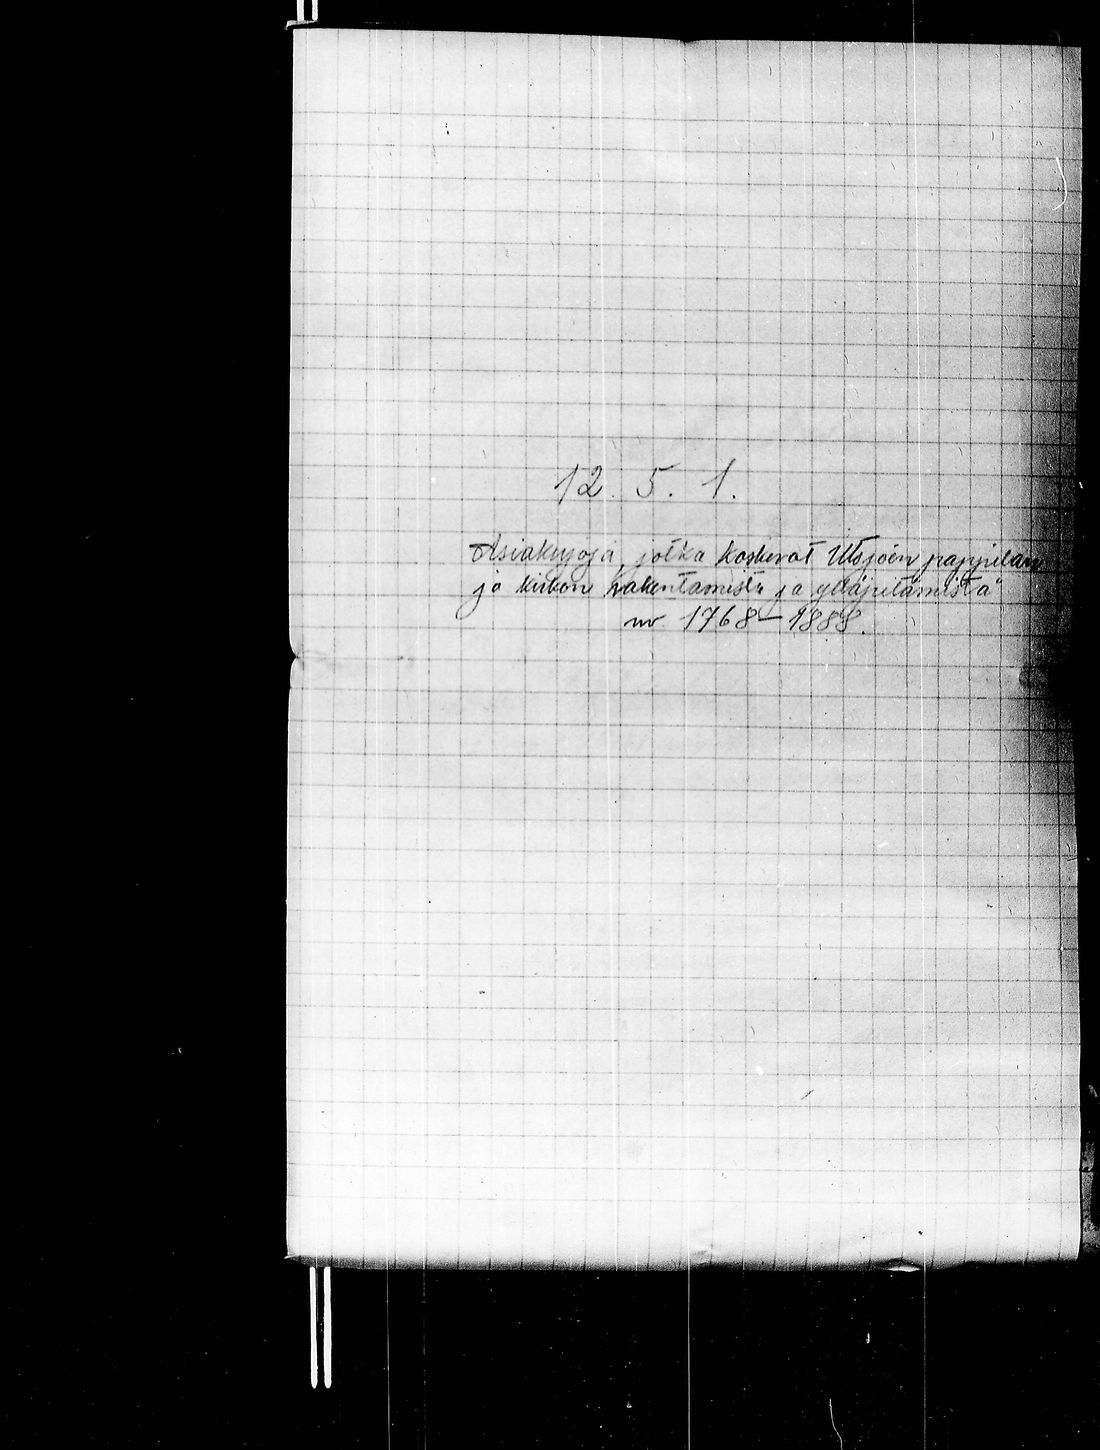 12. 5. 1.
Asiakirjoja, jotka koskevat Utsjoen pappilan
ja kirkon rakentamista ja ylläpitämistä
vv. 1768–1888.